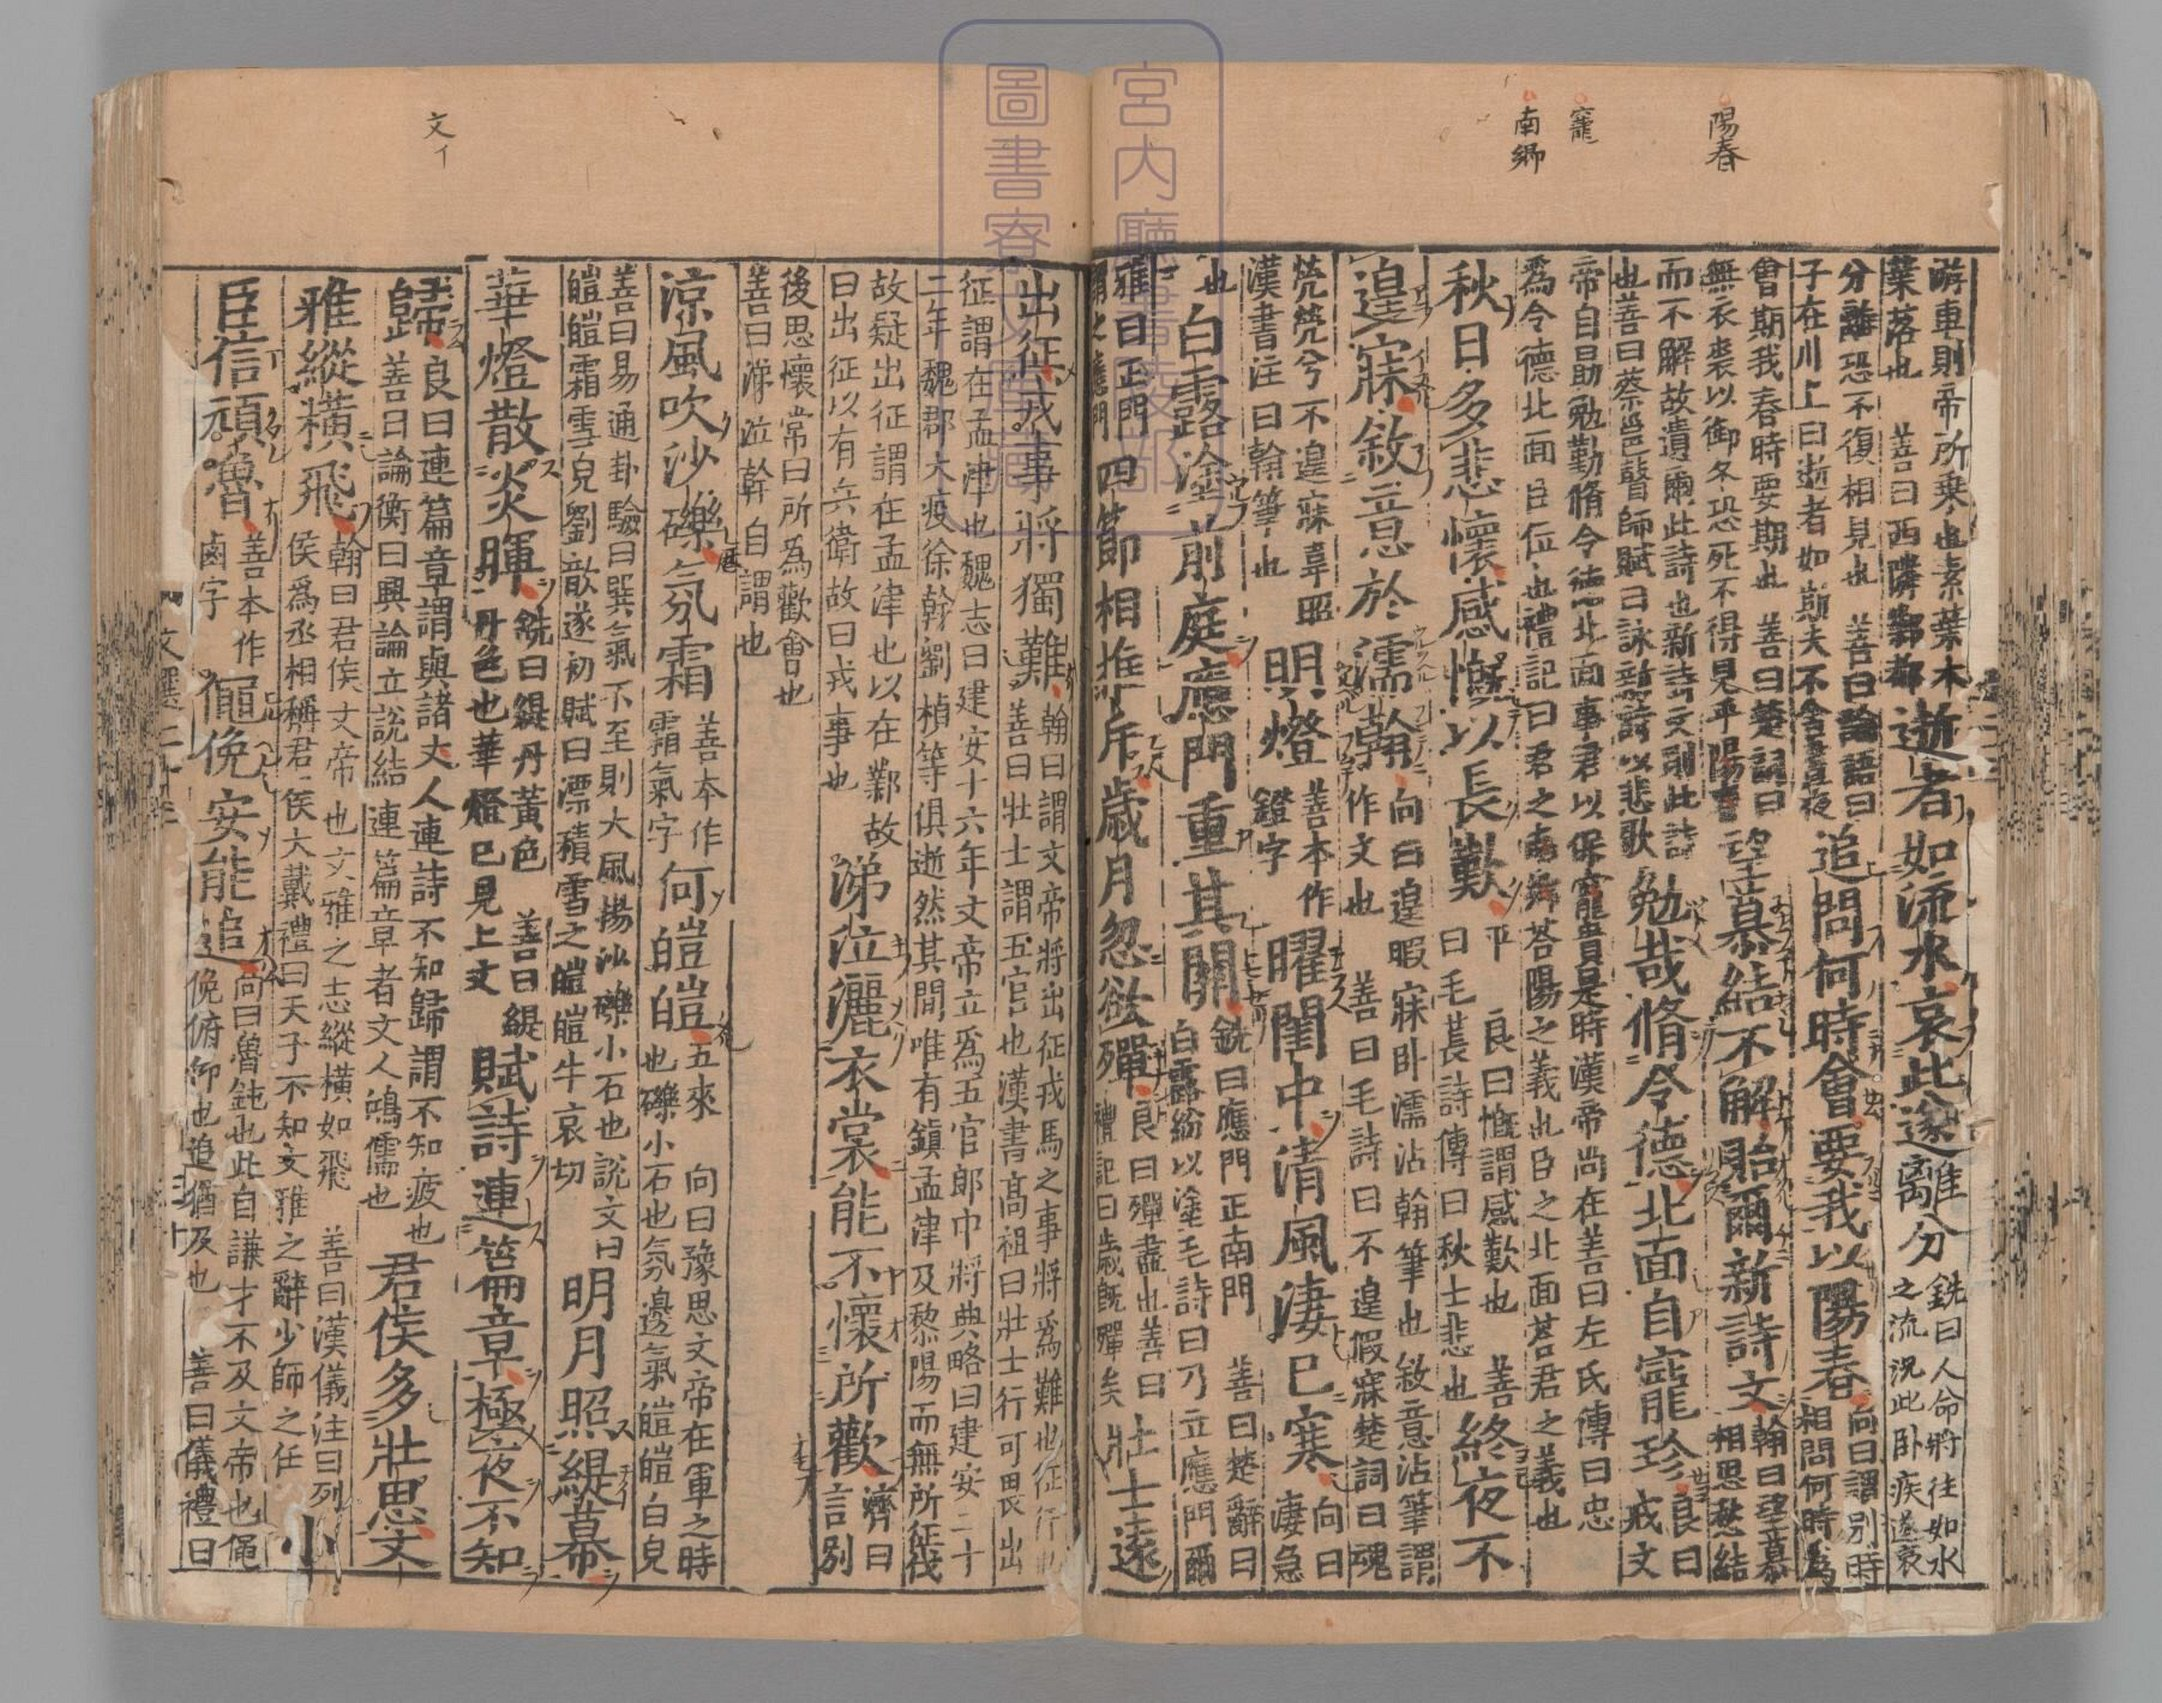 游車則帝所乗也素葉木
葉落也 善曰西隣鄴都
逝者如流水哀此遂離分
銑曰人命將往如水
之流況此卧疾遂哀
分離恐不復相見也 善曰論語曰
子在川上曰逝者如斯夫不舍晝夜
追問何時會要我以陽春
向曰謂別時
相問何時爲
會期我春時要期也 善曰楚詞曰
無衣裘以御冬恐死不得見乎陽春
望慕結不解貽爾新詩文
翰曰望慕
相思愁結
而不解故遺爾此詩也新詩文則此詩
也善曰蔡邕瞽師賦曰詠新詩以悲歌
勉哉脩令德北面自寵珍
良曰
戒文
帝自勗勉勤脩令德北面事君以保寵貴是時漢帝尚在善曰左氏傳曰忠
爲令德北面臣位也禮記曰君之南鄉荅陽之義也臣之北面荅君之義也
秋日多悲懷感慨以長歎
平 良曰慨謂感歎也 善
曰毛萇詩傳曰秋士悲也
終夜不
遑寐敘意於濡翰
向曰遑暇寐卧濡沾翰筆也敘意沾筆謂
作文也 善曰毛詩曰不遑假寐楚詞曰魂
煢煢兮不遑寐韋昭
漢書注曰翰筆也
明燈
善本作
鐙字
曜閨中清風淒已寒
向曰
淒急
也
白露塗前庭應門重其關
銑曰應門正南門 善曰楚辭曰
白露紛以塗塗毛詩曰乃立應門爾
雅曰正門
謂之應門
四節相推斥歳月忽欲殫
良曰殫盡也善曰
禮記曰歳既殫矣
壯士遠
陽春
寵
南鄉
出征戎事將獨難
翰曰謂文帝將出征戎馬之事將爲難也征行也
善曰壯士謂五官也漢書髙祖曰壯士行可畏出
征謂在孟津也魏志曰建安十六年文帝立爲五官郎中將典略曰建安二十
二年魏郡大疫徐幹劉楨等俱逝然其間唯有鎮孟津及黎陽而無所征伐
故疑出征謂在孟津也以在鄴故
曰出征以有兵衛故曰戎事也
涕泣灑衣裳能不懷所歡
濟曰
言別
後思懷常曰所爲歡會也
善曰涕泣幹自謂也
涼風吹沙礫氛霜
善本作
霜氣字
何皚皚
五來 向曰豫思文帝在軍之時
也礫小石也氛邊氣皚皚白皃
善曰易通卦驗曰巽氣不至則大風揚沙礫小石也説文曰
皚皚霜雪皃劉歆遂初賦曰漂積雪之皚皚牛哀切
明月照緹幕
華燈散炎暉
銑曰緹丹黃色 善曰緹
丹色也華燈已見上文
賦詩連篇章極夜不知
歸
良曰連篇章謂與諸文人連詩不知歸謂不知疲也
善曰論衡曰興論立說結連篇章者文人鴻儒也
君侯多壯思文
雅縱橫飛
翰曰君侯文帝也文雅之志縱橫如飛 善曰漢儀注曰列
侯爲丞相稱君侯大戴禮曰天子不知文雅之辭少師之任
小
臣信頑魯
善本作
鹵字
僶俛安能追
向曰魯鈍也此自謙才不及文帝也僶
俛俯仰也追猶及也 善曰儀禮曰
文イ
文選二十三
三十
宮内廳書陵部
圖書寮文庫藏